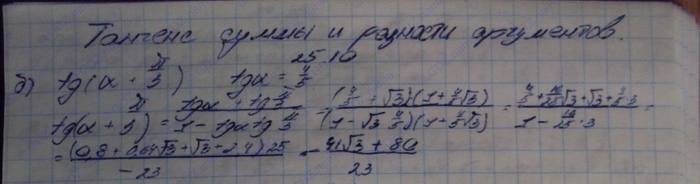 Тангенс суммы и разности аргументов.
25.10
б) tg(α + π/3) tgα = 4/5
tg(α + π/3) = (tgα + tg π/3)/(1 - tgα tg π/3) = (4/5 + √3)(1 + 4/5 √3)/(1 - √3 4/5)(1 + 4/5 √3) = (4/5 + 16/25 √3 + √3 + 4/5 · 3)/(1 - 16/25 · 3) =
= (0,8 + 0,64√3 + √3 + 2,4) 25/-23 = 41√3 + 80/23